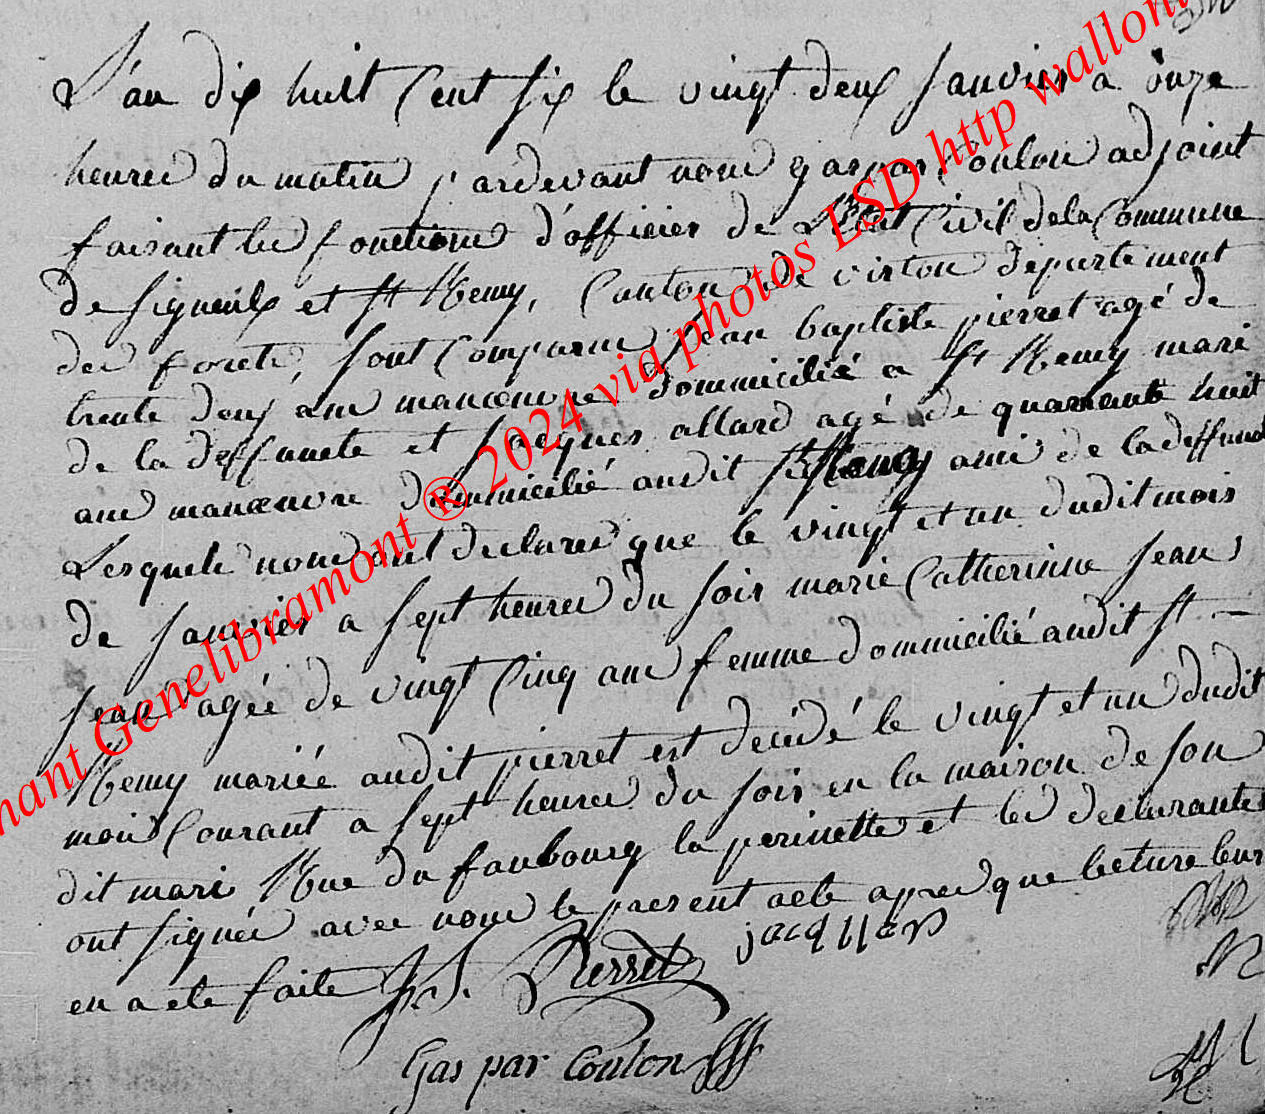 L'an dix huit Cent six le vingt deux Janvier a onze
heures du matin pardevant nous gaspar Coulon adjoint
faisant les fonctions d'officier de L'Etat Civil de la Commune
de signeulx et St Remy, Canton de virton departement
des forets, sont Comparus Jean baptiste pierret agé de
trente deux ans manoeuvre dommicilié a St Remy mari
de la deffuncte et Jacques allard agé de quarante huit
ans manoeuvre dommicilié audit St Remy ami de la deffunct
Lesquels nous ont declares que le vingt et un dudit mois
de Janvier a sept heures du soir marie Catherinne Jean
Jean agée de vingt Cinq ans femme domiciliée audit St -
Remy mariée audit pierret est decidé le vingt et un dudit
mois Courant a sept heures du soir en la maison de son
dit mari Rue du faubourg la perinette et les declarantes
ont signés avec nous le present acte apres que lecture leur
en a ete faite J. Pierret jacq llar
Gaspar Coulon
Genelibramont ® 2024 via photos LSD http wallon